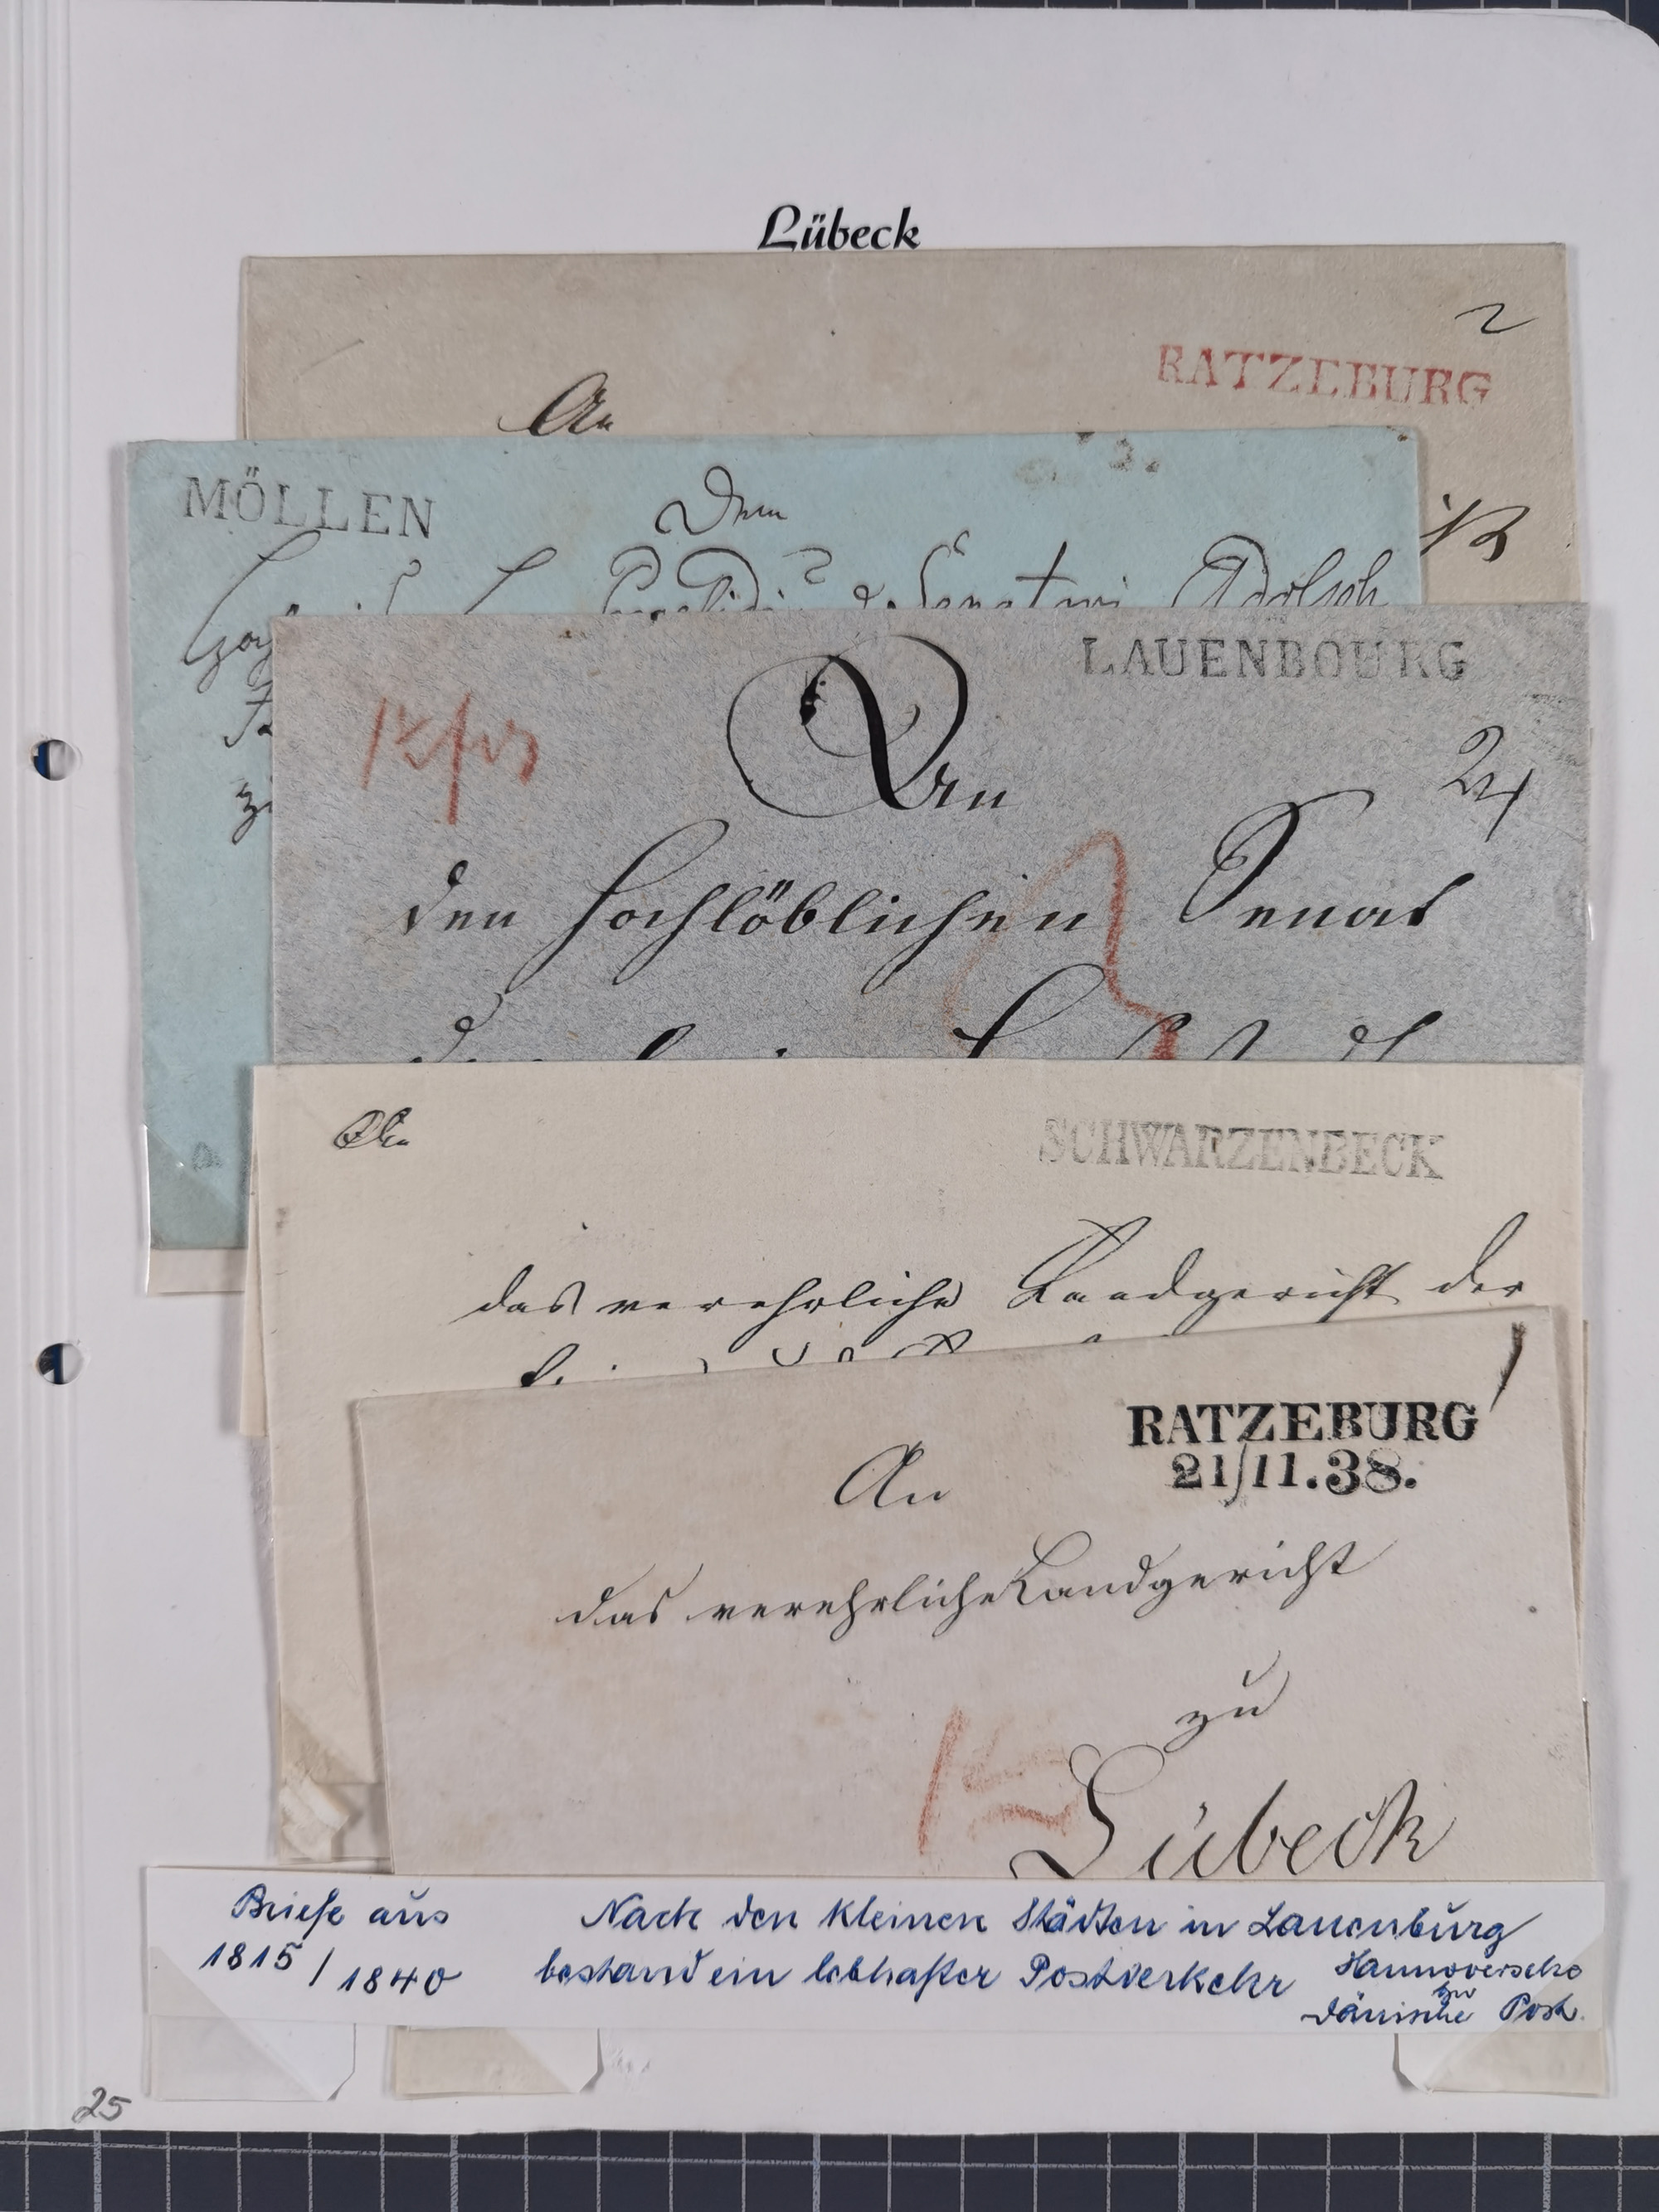 Lübeck
2
RATZEBURG
An
MÖLLEN
Dem
Senator Adolph
LAUENBOURG
An
den hochlöblichen Senat
An
SCHWARZENBECK
das verehrliche Landgericht der
RATZEBURG
21/11.38.
An
das verehrliche Landgericht
zu
Lübeck
Briefe aus
1815/1840
Nach den kleinen Städten in Lauenburg
bestand ein lebhafter Postverkehr Hannoversche
zu
dänische Post.
25